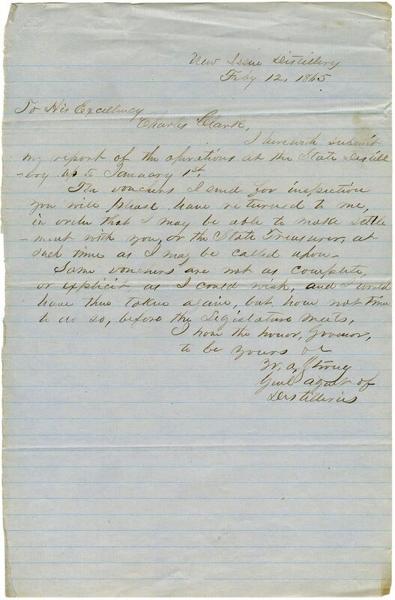 Distillery
Feby 12, 1865
To His Excellency
Charles Clark,
I herewith submit
my report of the operations at the State Distill
-ery up to January 1st
The vouchers I send for inspection
you will please have returned to me,
in order that I may be able to make settle
-ment with you, or the State Treasurer, at
such time as I may be called upon.
Some vouchers are not as complete,
or explicit as I could wish, and I would
have them taken again, but have not time
to do so, before the Legislature meets,
I have the honor, Governor,
to be yours
Strong
Genl agent of
Distilleries